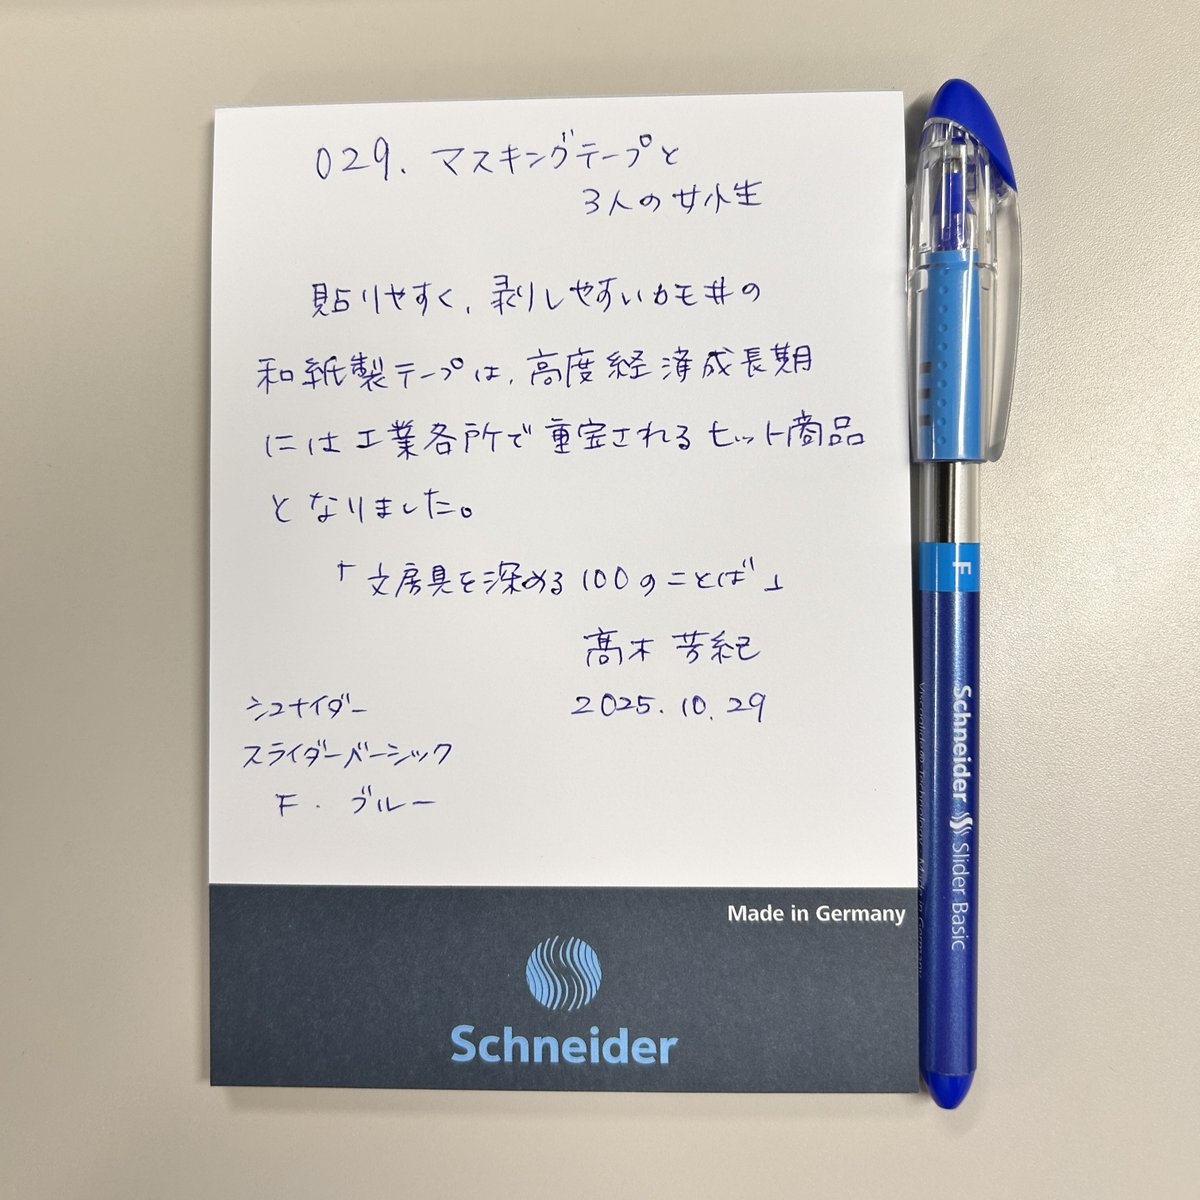 029. マスキングテープと
3人の女小生
貼りやすく、剥しやすいカモ井の
和紙製テープは、高度経済成長期
には工業各所で重宝されるヒット商品
となりました。
「文房具を深める100のことば」
髙木 芳紀
2025.10.29
シュナイダー
スライダーベーシック
F. ブルー
Made in Germany
Schneider
F
Schneider Slider Basic